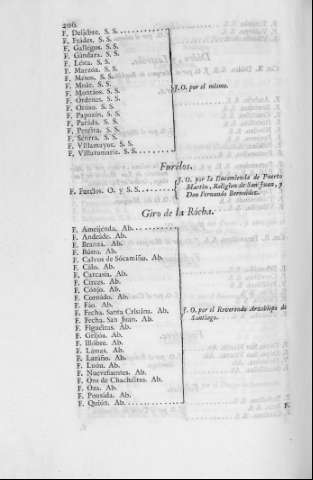 206
F. Deíxebre. S. S.
F. Frades. S. S.
F. Gallegos. S. S.
F. Gándara. S. S.
F. Lésta. S. S.
F. Marzóa. S. S.
F. S. S.
F. S. S.
F. Montáos. S. S.
F. Ordenes. S. S.
F. S. S.
F. Papucin. S. S.
F. Paráda. S. S.
F. Peréira. S. S.
F. S. S.
F. Villamayor. S. S.
F. Villaromariz. S. S.
J. O. por el mismo.
Furelos.
F. Furelos. O. y S. S.
J. O. por la Encomienda de Puerto
Marin, Religion de San Juan, y
Don Fernando Bermudez.
Giro de la Rócha.
F. Ameijenda. Ab.
F. Andeade. Ab.
F. Ab.
F. Ab.
F. Calvos de Sócamiño. Ab.
F. Ab.
F. Carcasía. Ab.
F. Circes. Ab.
F. Cónjo. Ab.
F. Ab.
F. Fáo. Ab.
F. Fecha. Santa Cristina. Ab.
F. Fecha. San Juan. Ab.
F. Figueiras. Ab.
F. Grijóa. Ab.
F. Illobre. Ab.
F. Ab.
F. Laráño. Ab.
F. Ab.
F. Nuevefuentes. Ab.
F. Ons de Ab.
F. Oza. Ab.
F. Pousáda. Ab.
F. Quión. Ab.
J. O. por el Reverendo Arzobispo de
Santiago.
F.